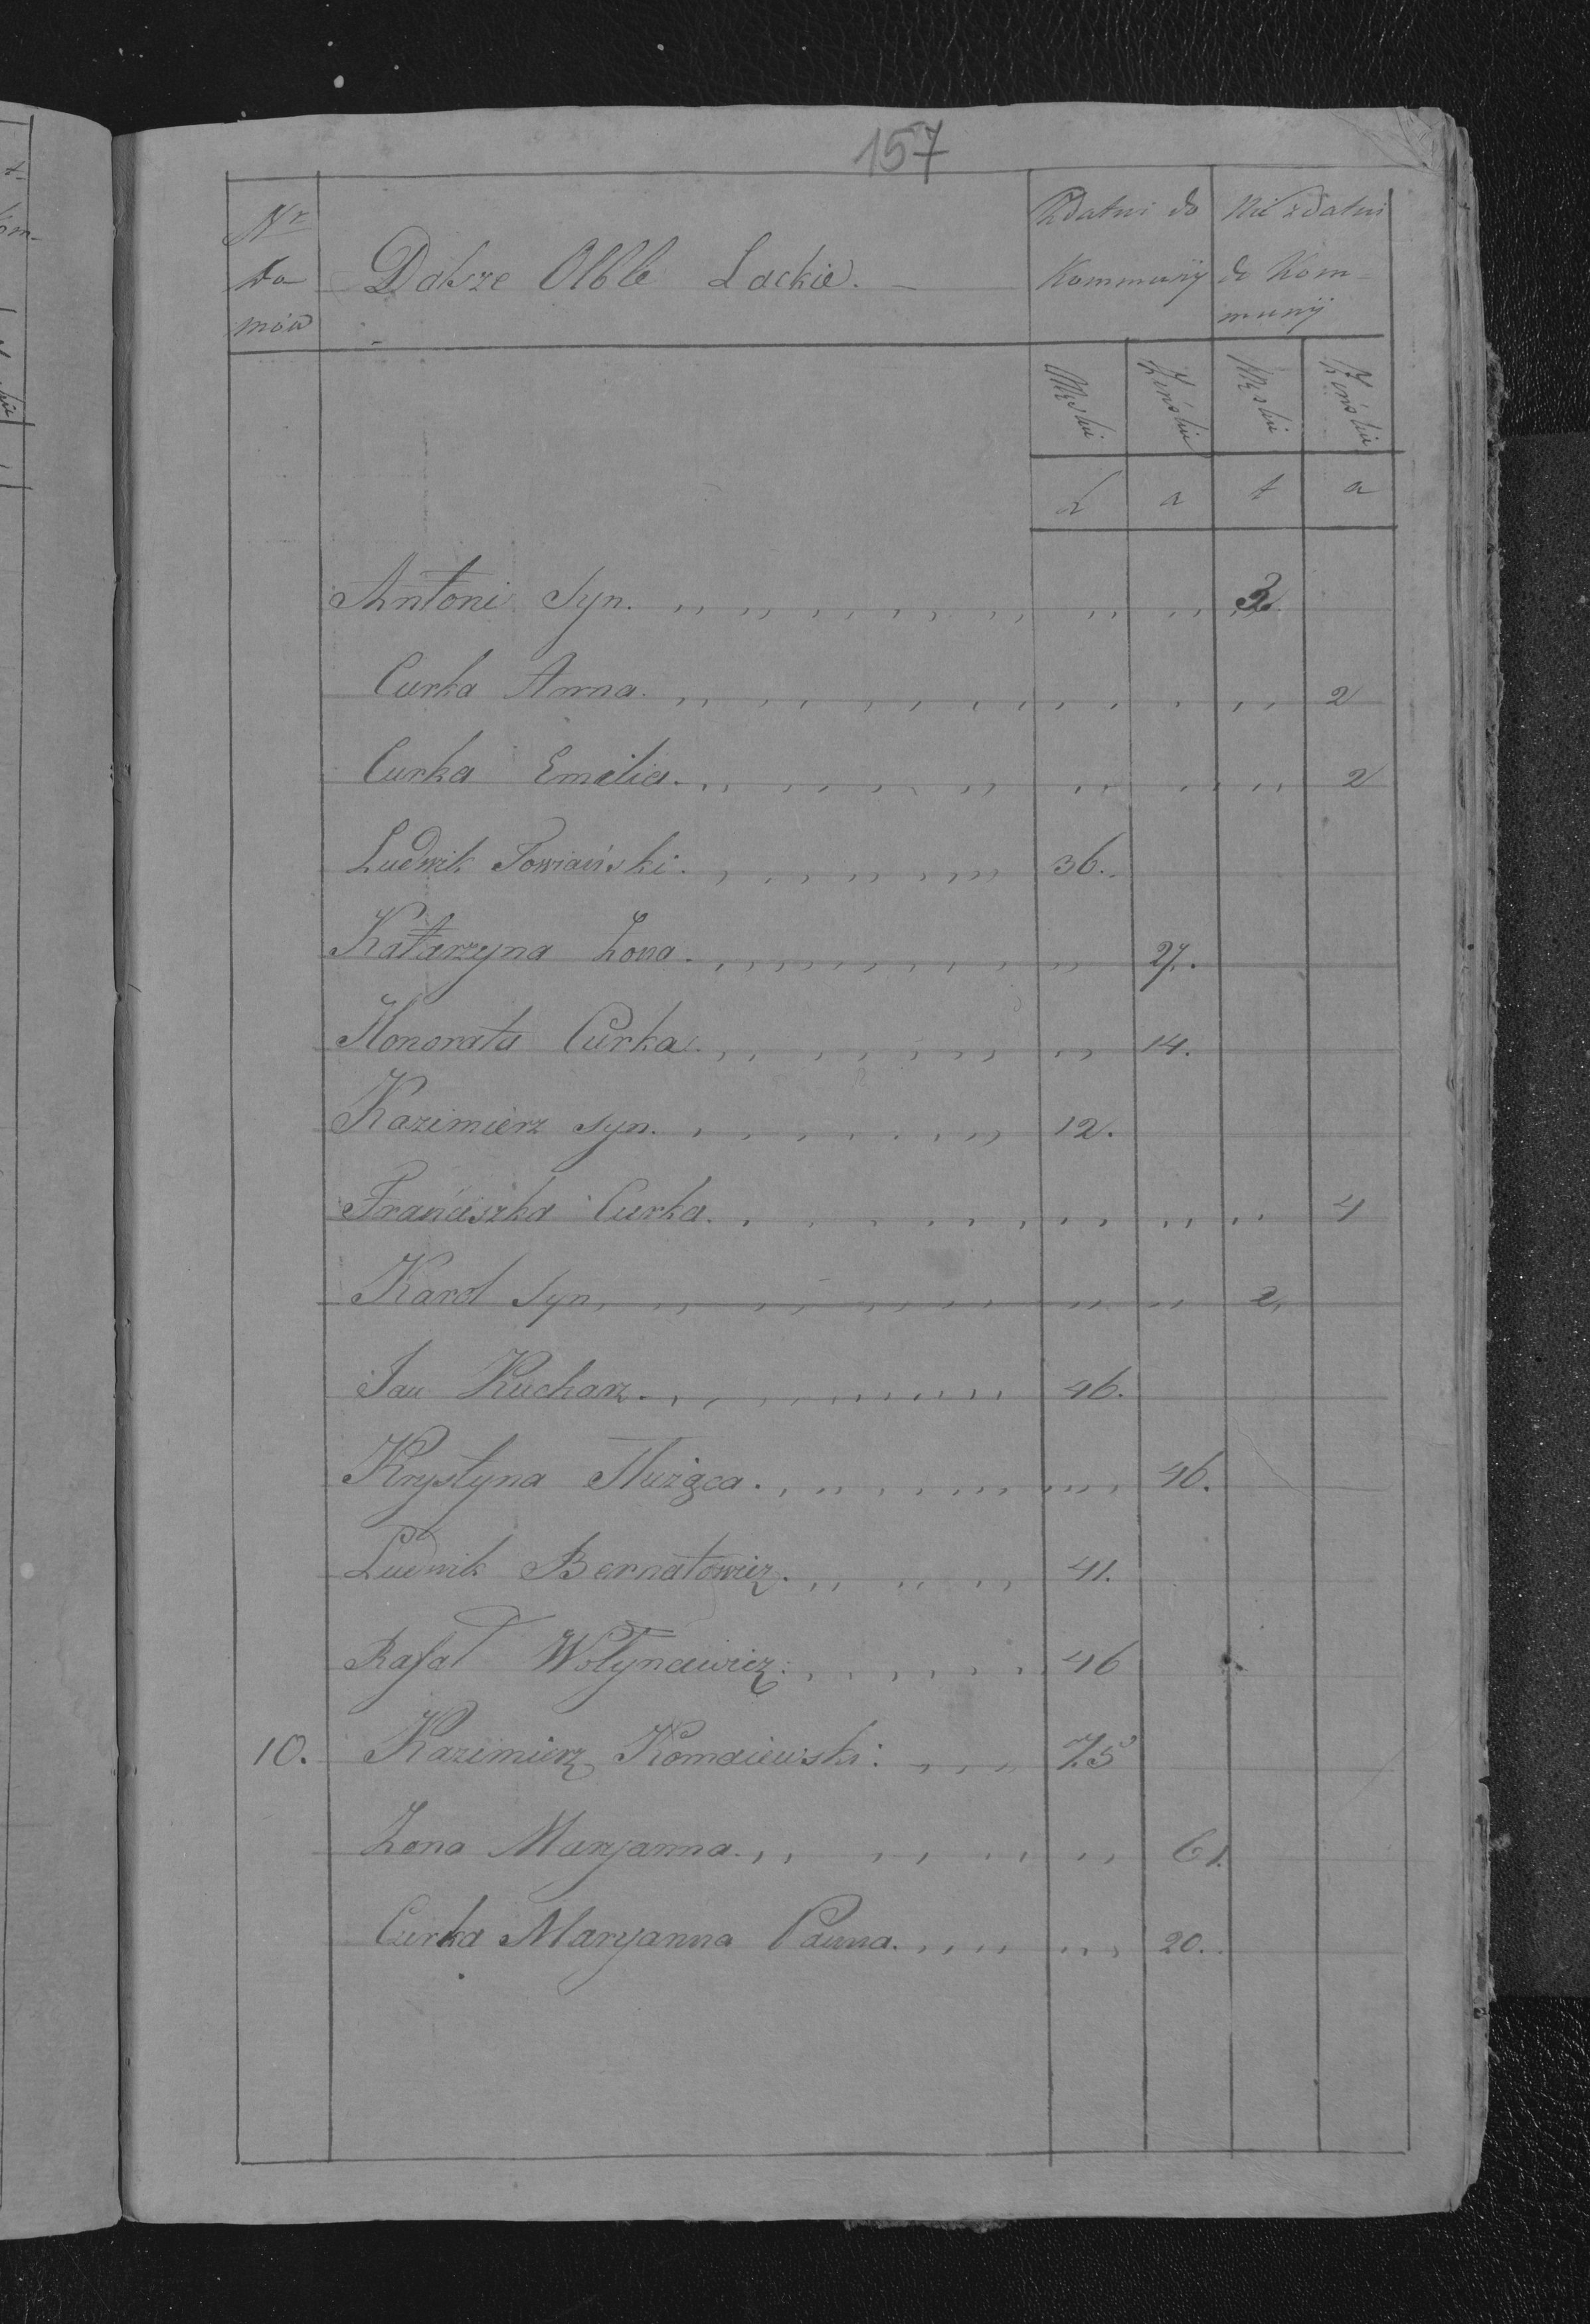 157
Nr Do- mów
Dalsze Olble Lackie.
Zdatni do Kommunij
Nie zdatni do Kom- munij
Męskie Żeńskie Męskie Żeńskie
L a t a
Antoni Syn. 3.
Curka Anna. 2
Curka Emilia. 2
Ludwik Towiański. 36.
Katarzyna Żona. 27.
Honorata Curka. 14.
Kazimierz syn. 12.
Franciszka Curka. 4
Karol Syn 2,
Jan Kucharz. 46.
Krystyna Służąca. 46.
Ludwik Bernatowicz. 41.
Rafał Wołyncewicz. 46
10. Kazimierz Komaiewski: 75
Żona Maryanna. 61.
Curka Maryanna Panna. 20.